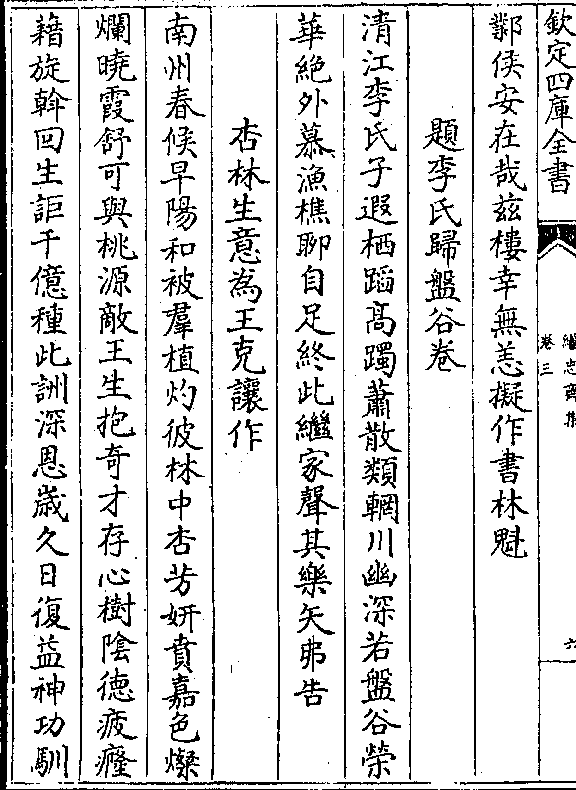 欽定四庫全書
繼志齋集
卷三
六
鄴侯安在哉兹樓幸無恙擬作書林魁
題李氏歸盤谷卷
清江李氏子遐栖蹈高躅蕭散類輞川幽深若盤谷榮
華絶外慕漁樵聊自足終此繼家聲其樂矢弗告
杏林生意為王克讓作
南州春候早陽和被羣植灼彼林中杏芳妍賁嘉色燦
爛曉霞舒可與桃源敵王生抱奇才存心樹陰德疲癃
藉旋斡回生詎千億種此詶深恩歲久日復益神功馴